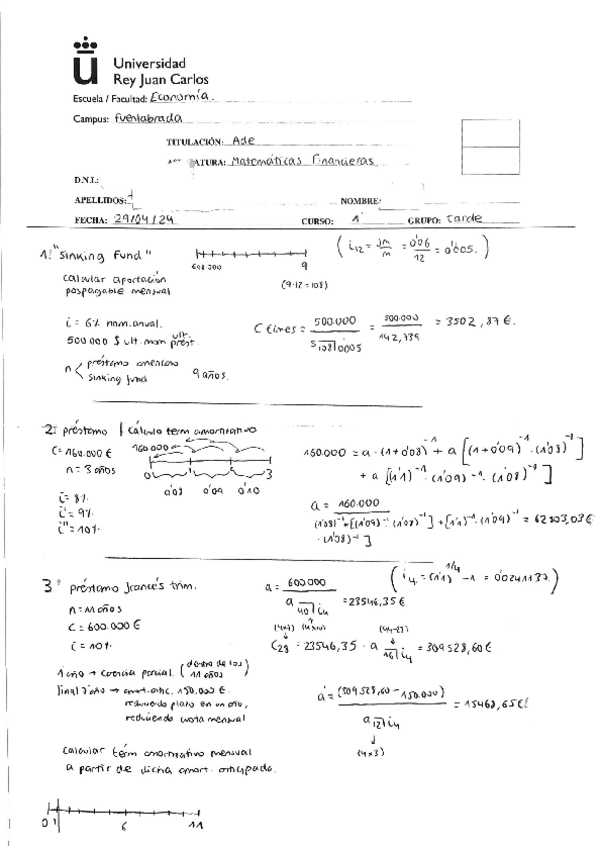 Universidad
Rey Juan Carlos
Escuela / Facultad: Economía.
Campus: Fuenlabrada
TITULACIÓN: Ade
ATURA: Matemáticas Financieras
D.N.I.:
APELLIDOS: NOMBRE:
FECHA: 29/04/24 CURSO: 1º GRUPO: tarde
1. "Sinking Fund" 9 ( i12 = Jm/m = 0'06/12 = 0'005. )
calcular aportación (9·12=108)
pospagable mensual
i = 6% nom. anual.
500.000 $ ult. nom. prést. ult. C €/mes = 500.000 / S108|0'005 = 500.000 / 142,739 = 3502,87 €.
n < préstamo americano
sinking fund 9 años.
2. préstamo | cálculo term amortizativo
C = 160.000 € 160.000
n = 3 años 0 3
0'08 0'09 0'10
i = 8%
i' = 9%
i'' = 10%
160.000 = a · (1+0'08)^-1 + a [(1+0'09)^-1 · (1'08)^-1]
+ a [(1'1)^-1 · (1'09)^-1 · (1'08)^-1]
a = 160.000 / (1'08)^-1 + [(1'09)^-1 · (1'08)^-1] + [(1'1)^-1 · (1'09)^-1 · (1'08)^-1] = 62803,03 €
3º préstamo francés trim. ( i4 = (1'1)^1/4 - 1 = 0'0241137. )
n = 11 años a = 600.000 / a 40| i4 = 23546,35 €
C = 600.000 € (4x7) (4x10) (44-28)
i = 10% C28 = 23546,35 · a 16| i4 = 309528,60 €
1 año → carencia parcial. (dentro de los 11 años)
final 7 año → amort. antic. 150.000 €.
reduciendo plazo en un año,
reduciendo cuota mensual
a' = (309528,60 - 150.000) / a12| i4 = 15468,65 €!
(4x3)
calcular térm amortizativo mensual
a partir de dicha amort. anticipada.
0 1 6 11